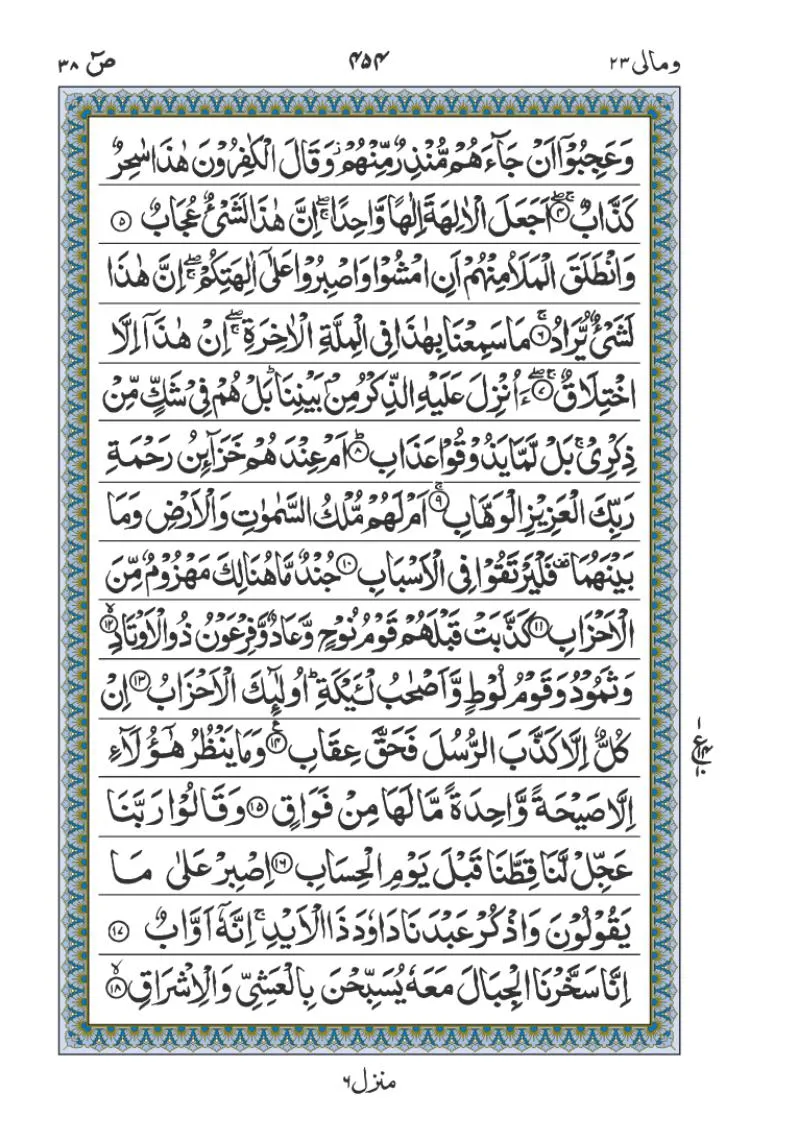 ومالی ۲۳ ۴۵۴ صٓ ۳۸
وَعَجِبُوْۤا اَنْ جَآءَهُمْ مُّنْذِرٌ مِّنْهُمْ ؗ وَقَالَ الْكٰفِرُوْنَ هٰذَا سٰحِرٌ
كَذَّابٌ ۖۚ ۴ اَجَعَلَ الْاٰلِهَةَ اِلٰهًا وَّاحِدًا ۖۚ اِنَّ هٰذَا لَشَیْءٌ عُجَابٌ ۵
وَانْطَلَقَ الْمَلَاُ مِنْهُمْ اَنِ امْشُوْا وَاصْبِرُوْا عَلٰۤی اٰلِهَتِكُمْ ۖۚ اِنَّ هٰذَا
لَشَیْءٌ یُّرَادُ ۚ ۶ مَا سَمِعْنَا بِهٰذَا فِی الْمِلَّةِ الْاٰخِرَةِ ۖۚ اِنْ هٰذَاۤ اِلَّا
اخْتِلَاقٌ ۖۚ ۷ ءَاُنْزِلَ عَلَیْهِ الذِّكْرُ مِنْۢ بَیْنِنَا ؕ بَلْ هُمْ فِیْ شَكٍّ مِّنْ
ذِكْرِیْ ۚ بَلْ لَّمَّا یَذُوْقُوْا عَذَابِ ؕ ۸ اَمْ عِنْدَهُمْ خَزَآئِنُ رَحْمَةِ
رَبِّكَ الْعَزِیْزِ الْوَهَّابِ ۚ ۹ اَمْ لَهُمْ مُّلْكُ السَّمٰوٰتِ وَالْاَرْضِ وَمَا
بَیْنَهُمَا ۫ فَلْیَرْتَقُوْا فِی الْاَسْبَابِ ۱۰ جُنْدٌ مَّا هُنَالِكَ مَهْزُوْمٌ مِّنَ
الْاَحْزَابِ ۱۱ كَذَّبَتْ قَبْلَهُمْ قَوْمُ نُوْحٍ وَّعَادٌ وَّفِرْعَوْنُ ذُوالْاَوْتَادِ ۙ ۱۲
وَثَمُوْدُ وَقَوْمُ لُوْطٍ وَّاَصْحٰبُ لْـَٔیْكَةِ ؕ اُولٰٓئِكَ الْاَحْزَابُ ۱۳ اِنْ
كُلٌّ اِلَّا كَذَّبَ الرُّسُلَ فَحَقَّ عِقَابِ ۠ ۱۴ وَمَا یَنْظُرُ هٰۤؤُلَآءِ
اِلَّا صَیْحَةً وَّاحِدَةً مَّا لَهَا مِنْ فَوَاقٍ ۱۵ وَقَالُوْا رَبَّنَا
عَجِّلْ لَّنَا قِطَّنَا قَبْلَ یَوْمِ الْحِسَابِ ۱۶ اِصْبِرْ عَلٰی مَا
یَقُوْلُوْنَ وَاذْكُرْ عَبْدَنَا دَاوٗدَ ذَا الْاَیْدِ ۚ اِنَّهٗۤ اَوَّابٌ ۱۷
اِنَّا سَخَّرْنَا الْجِبَالَ مَعَهٗ یُسَبِّحْنَ بِالْعَشِیِّ وَالْاِشْرَاقِ ۙ ۱۸
منزل ۶